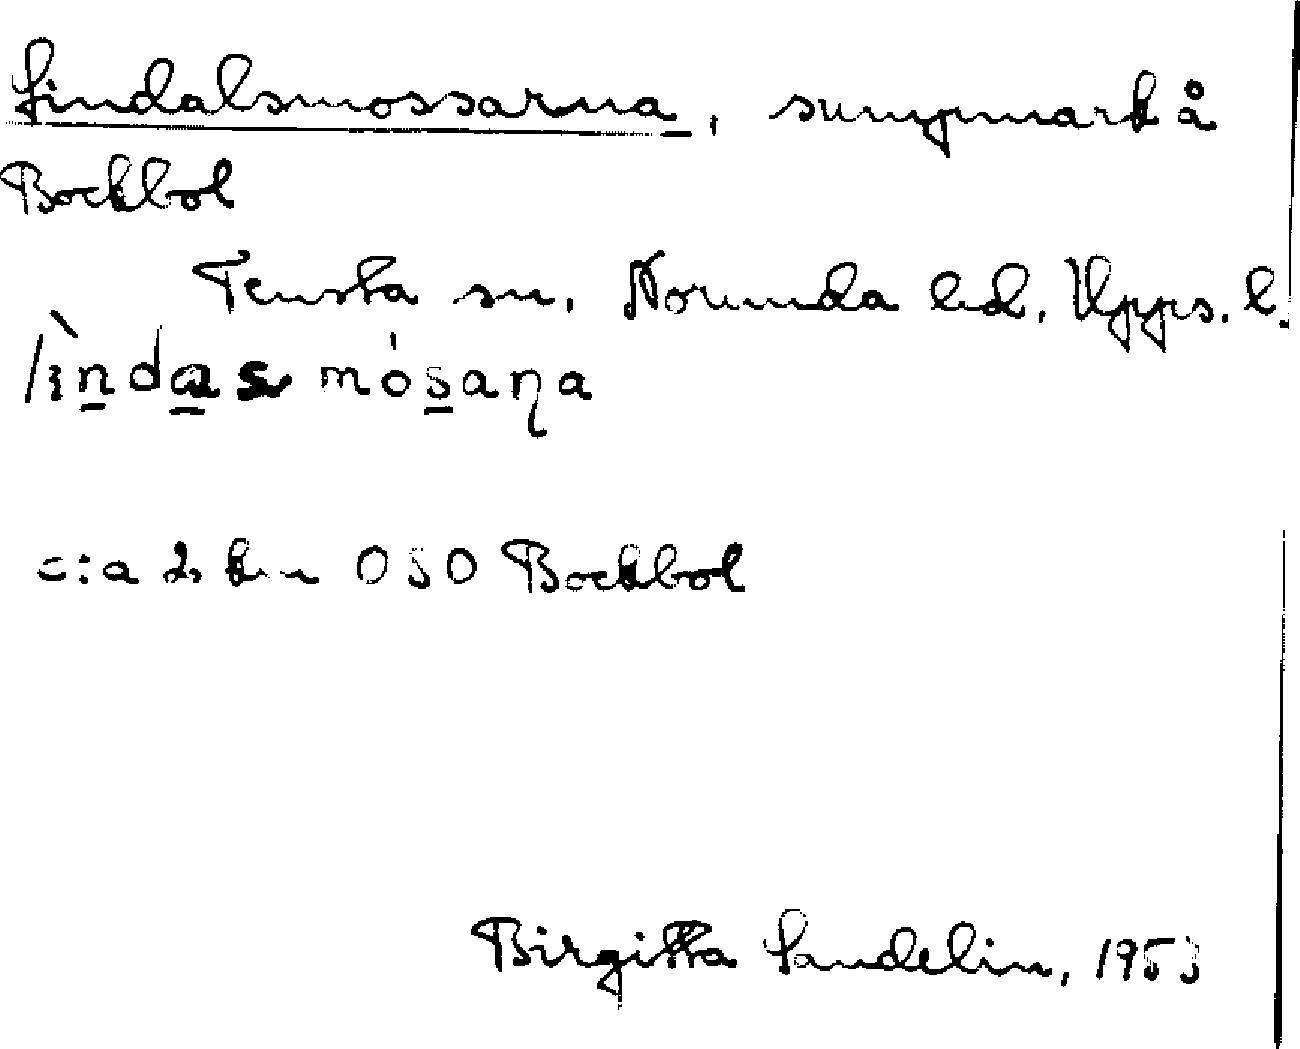 Lindalsmossarna, sumpmark å
Bockbol
Tensta sn. Norunda hd. Upps. l.
lìndas mósaṇa
c:a 2 km OSO Bockbol
Birgitta Sandelin, 1953